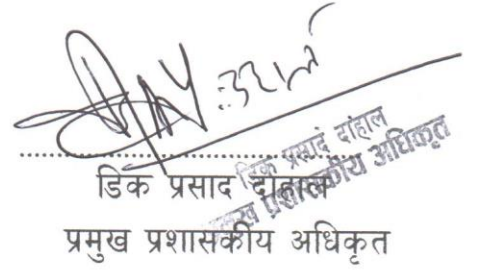 डिक प्रसाद दाहाल
प्रमुख प्रशासकीय अधिकृत
डिक प्रसाद दाहाल
प्रमुख प्रशासकीय अधिकृत